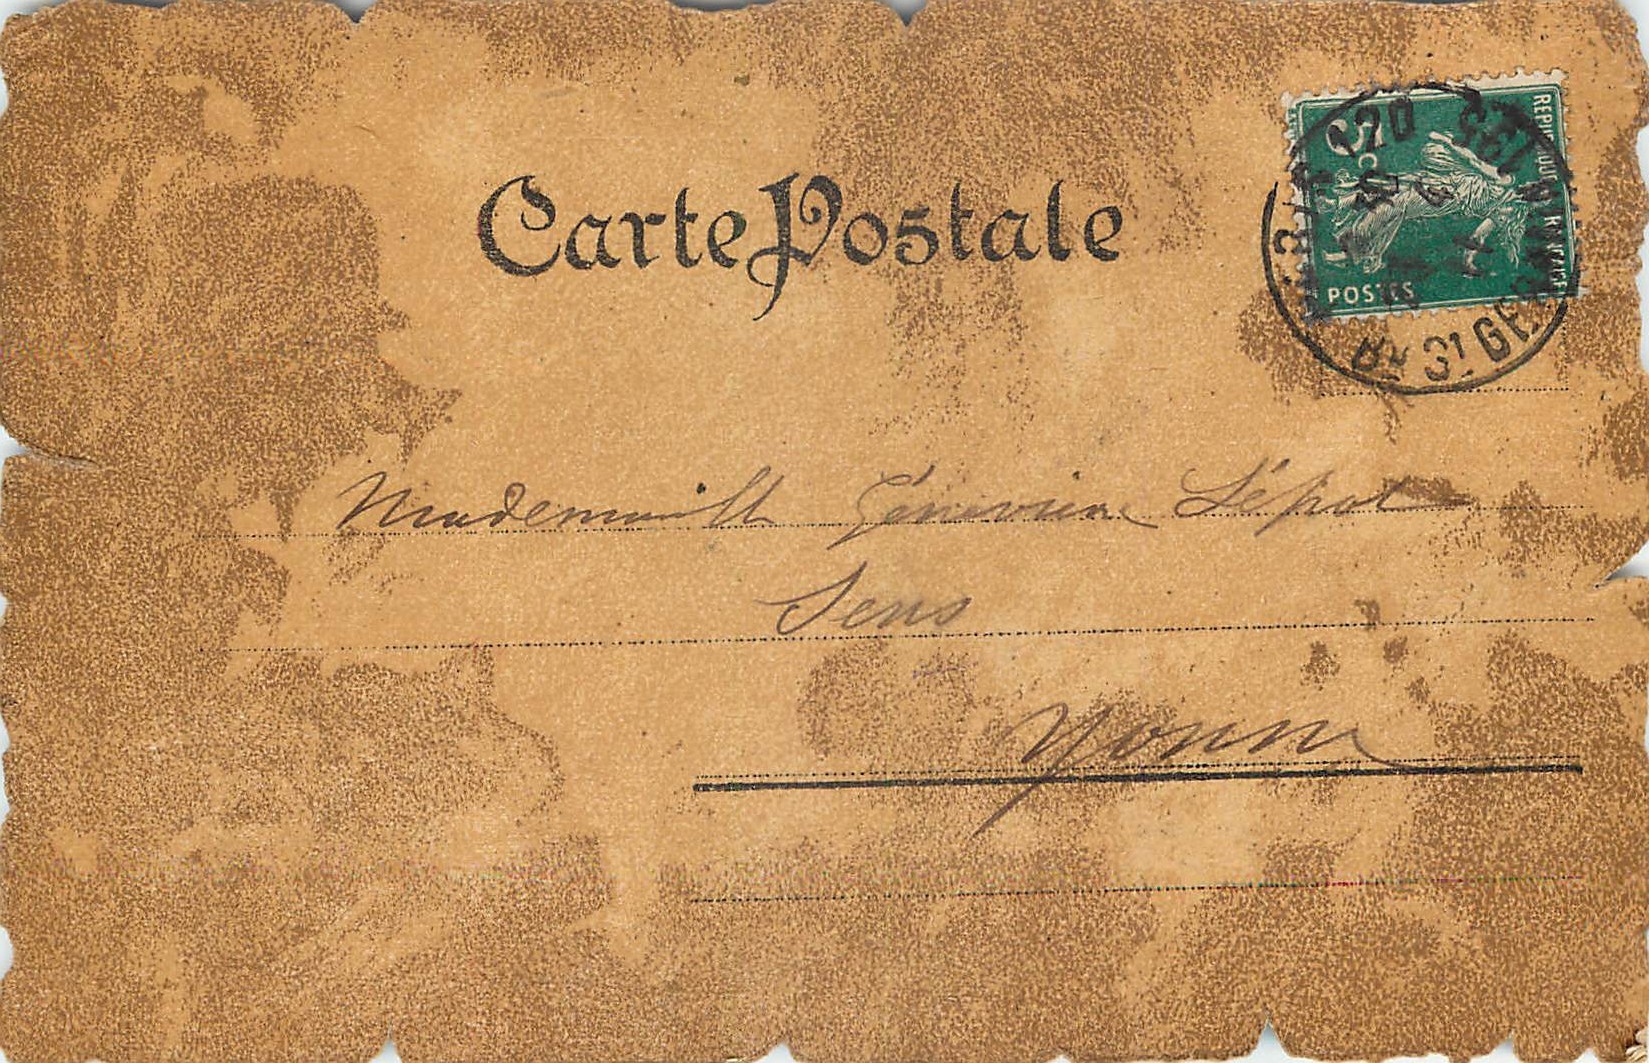 Carte Postale
5 c
REPUBLIQUE FRANÇAISE
POSTES
PARIS
Bd St GER
Mademoiselle Géneviève Lépot
Sens
Yonne